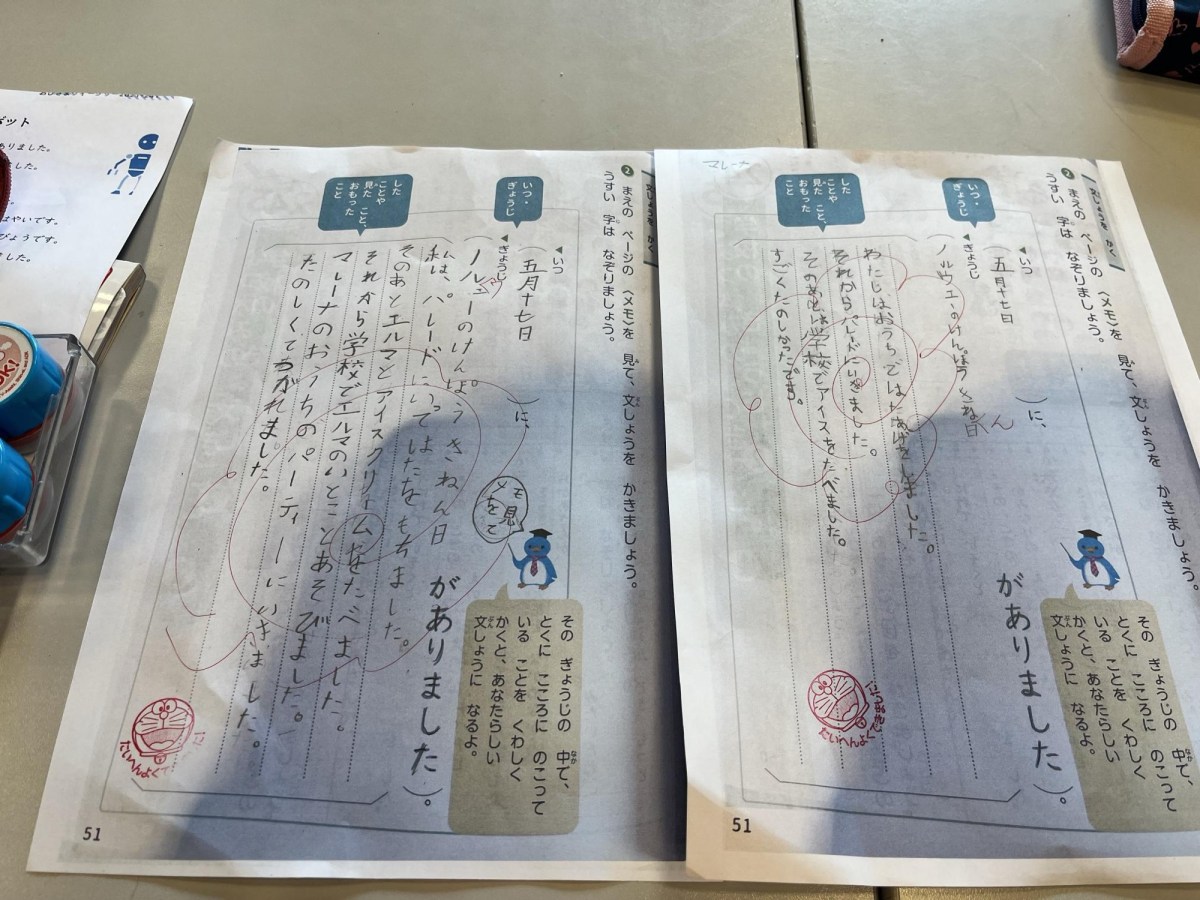 マレーナ
文しょうを かく
❷ まえの ページの 〈メモ〉を 見て、文しょうを かきましょう。
うすい 字は なぞりましょう。
いつ・
ぎょうじ
◀いつ
(五月十七日
◀ぎょうじ
)に、
ノルウエーのけんぽうきねん日
がありました)。
した
ことや
見た こと、
おもった
こと
わたしはおうちではたあげをしました。
それからパレードにいきました。
そのあと学校でアイスをたべました。
すごくたのしかったです。
その ぎょうじの 中で、
とくに こころに のこって
いる ことを くわしく
かくと、あなたらしい
文しょうに なるよ。
51
❷ まえの ページの 〈メモ〉を 見て、文しょうを かきましょう。
うすい 字は なぞりましょう。
いつ・
ぎょうじ
◀いつ
(五月十七日
◀ぎょうじ
)に、
(ノルーのけんぽうきねん日
がありました)。
メモ
を見て
した
ことや
見た こと、
おもった
こと
私は、パレードにいってはしたをもちました。
そのあとエルマとアイスクリームをたべました。
それから学校でエルマのいとことあそびました。
マレーナのおうちのパーティーにいきました。
たのしくてつかれました。
その ぎょうじの 中で、
とくに こころに のこって
いる ことを くわしく
かくと、あなたらしい
文しょうに なるよ。
たいへんよくで
51
ボット
ありました。
ました。
はやいです。
びょうです。
ました。
OK!